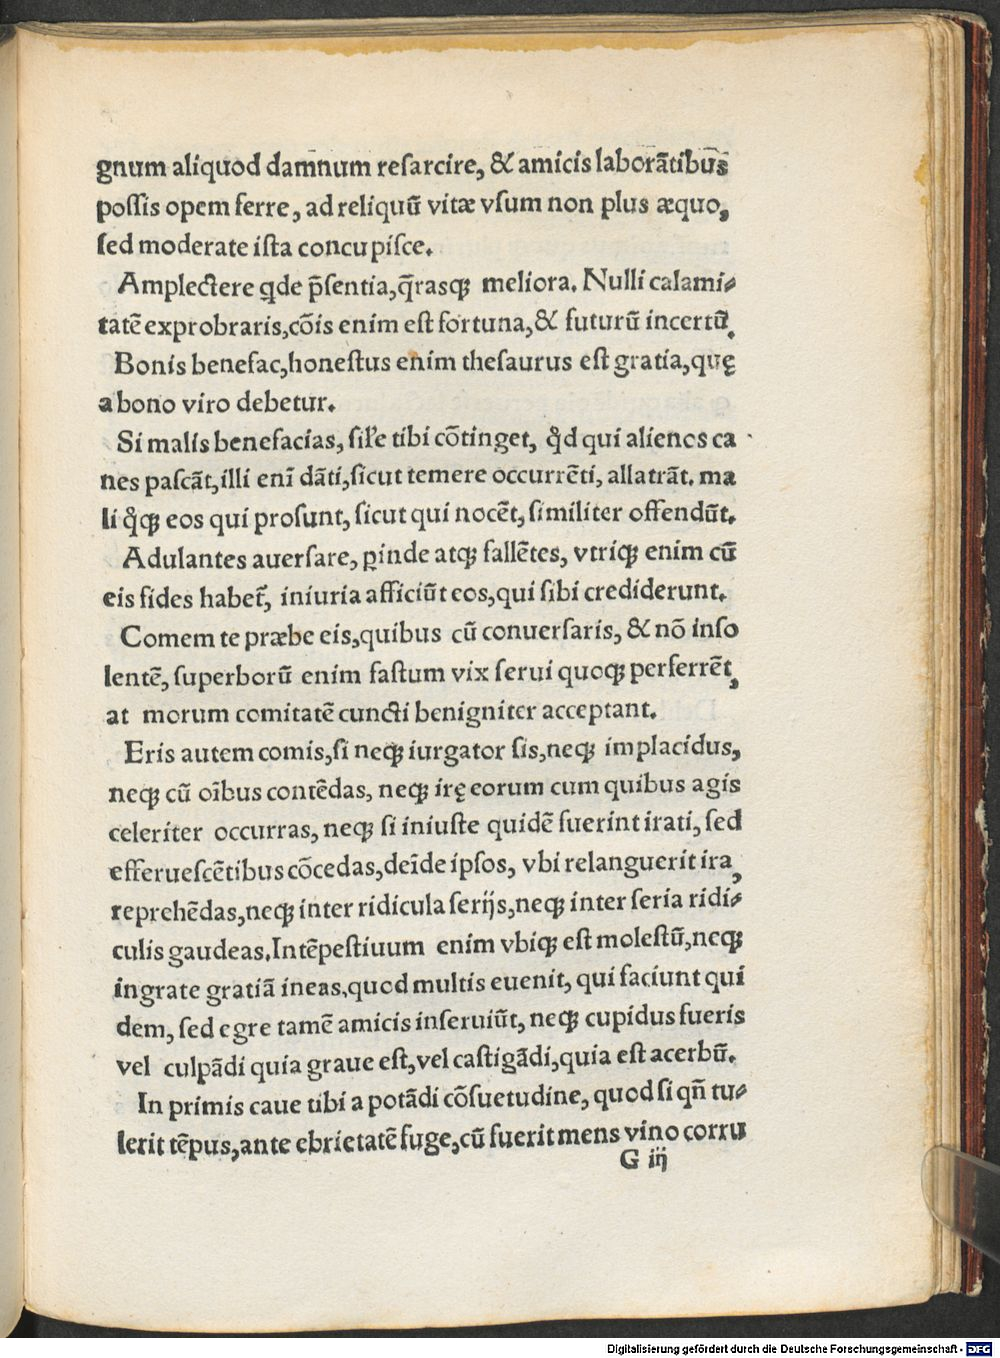 gnum aliquod damnum reſarcire, & amicis laborãtibus
poſſis opem ferre, ad reliquũ vitæ vſum non plus æquo,
ſed moderate iſta concupiſce.
Amplectere qde p̃ſentia, q̃rasqꝫ meliora. Nulli calami⸗
tatẽ exprobraris, cõis enim eſt fortuna, & futurũ incertũ.
Bonis benefac, honeſtus enim theſaurus eſt gratia, quę
a bono viro debetur.
Si malis benefacias, ſiľe tibi cõtinget, qd qui alienos ca
nes paſcãt, illi enĩ dãti, ſicut temere occurrẽti, allatrãt. ma
li qqꝫ eos qui proſunt, ſicut qui nocẽt, ſimiliter offendũt.
Adulantes auerſare, ꝑinde atqꝫ fallẽtes, vtriqꝫ enim cũ
eis fides habet̃, iniuria afficiũt eos, qui ſibi crediderunt.
Comem te præbe eis, quibus cũ conuerſaris, & nõ inſo
lentẽ, ſuperborũ enim faſtum vix ſerui quoqꝫ perferrẽt,
at morum comitatẽ cuncti benigniter acceptant.
Eris autem comis, ſi neqꝫ iurgator ſis, neqꝫ implacidus,
neqꝫ cũ oĩbus contẽdas, neqꝫ irę eorum cum quibus agis
celeriter occurras, neqꝫ ſi iniuſte quidẽ fuerint irati, ſed
efferueſcẽtibus cõcedas, deĩde ipſos, vbi relanguerit ira,
reprehẽdas, neqꝫ inter ridicula ſerijs, neqꝫ inter ſeria ridi⸗
culis gaudeas. Intẽpeſtiuum enim vbiqꝫ eſt moleſtũ, neqꝫ
ingrate gratiã ineas, quod multis euenit, qui faciunt qui
dem, ſed egre tamẽ amicis inſeruiũt, neqꝫ cupidus fueris
vel culpãdi quia graue eſt, vel caſtigãdi, quia eſt acerbũ.
In primis caue tibi a potãdi cõſuetudine, quod ſi qñ tu⸗
lerit tẽpus, ante ebrietatẽ fuge, cũ fuerit mens vino corru
G iij
Digitalisierung gefördert durch die Deutsche Forschungsgemeinschaft - DFG